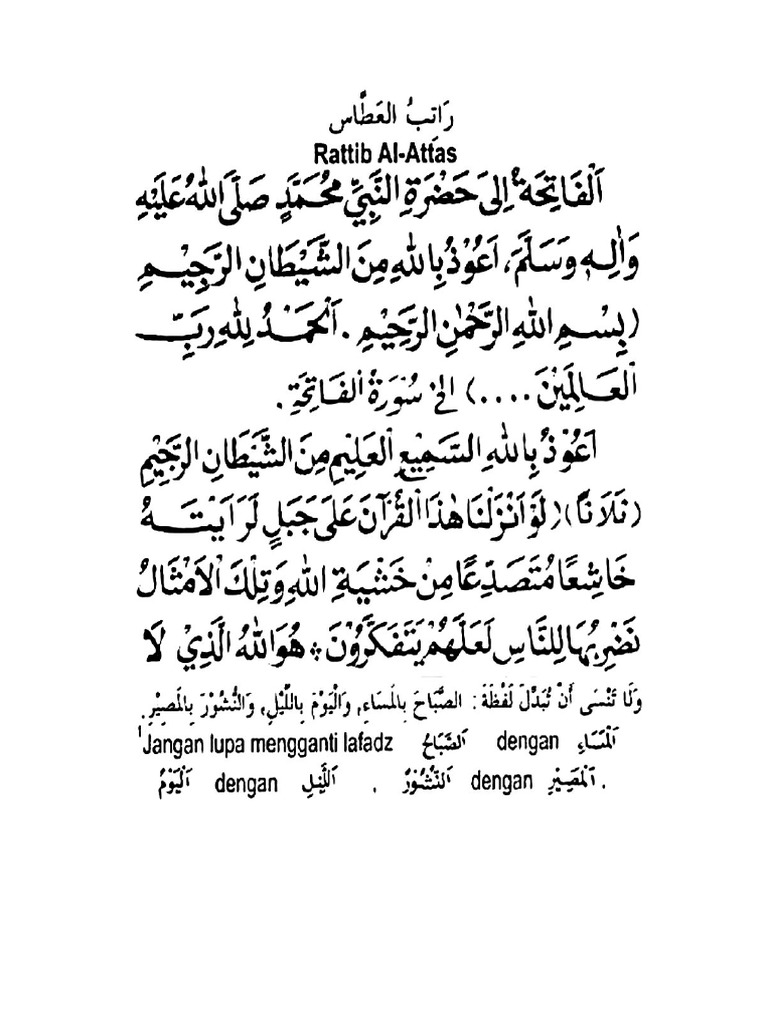 رَاتِبُ العَطَّاس
Rattib Al-Attas
اَلْفَاتِحَةُ اِلَى حَضْرَةِ النَّبِيِّ مُحَمَّدٍ صَلَّى اللهُ عَلَيْهِ
وَاٰلِهِ وَسَلَّمَ، اَعُوْذُ بِاللهِ مِنَ الشَّيْطَانِ الرَّجِيْمِ
(بِسْمِ اللهِ الرَّحْمٰنِ الرَّحِيْمِ . اَلْحَمْدُ لِلّٰهِ رَبِّ
الْعَالَمِيْنَ ....) اِلىٰ سُوْرَةُ الْفَاتِحَةِ .
اَعُوْذُ بِاللهِ السَّمِيْعِ الْعَلِيْمِ مِنَ الشَّيْطَانِ الرَّجِيْمِ
(ثَلَاثًا) (لَوْ اَنْزَلْنَا هٰذَا الْقُرْآنَ عَلَى جَبَلٍ لَرَاَيْتَهُ
خَاشِعًا مُتَصَدِّعًا مِنْ خَشْيَةِ اللهِ وَتِلْكَ الْاَمْثَالُ
نَضْرِبُهَا لِلنَّاسِ لَعَلَّهُمْ يَتَفَكَّرُوْنَ ۞ هُوَ اللهُ الَّذِيْ لَا
وَلَا تَنْسَى أَنْ تُبَدِّلَ لَفْظَةَ : الصَّبَاحَ بِالْمَسَاءِ, وَالْيَوْمَ بِاللَّيْلِ, وَالنُّشُوْرَ بِالْمَصِيْرِ.
¹Jangan lupa mengganti lafadz اَلصَّبَاحُ dengan اَلْمَسَاءِ
اَلْيَوْمُ dengan اَللَّيْلِ . اَلنُّشُوْرُ dengan اَلْمَصِيْرِ .